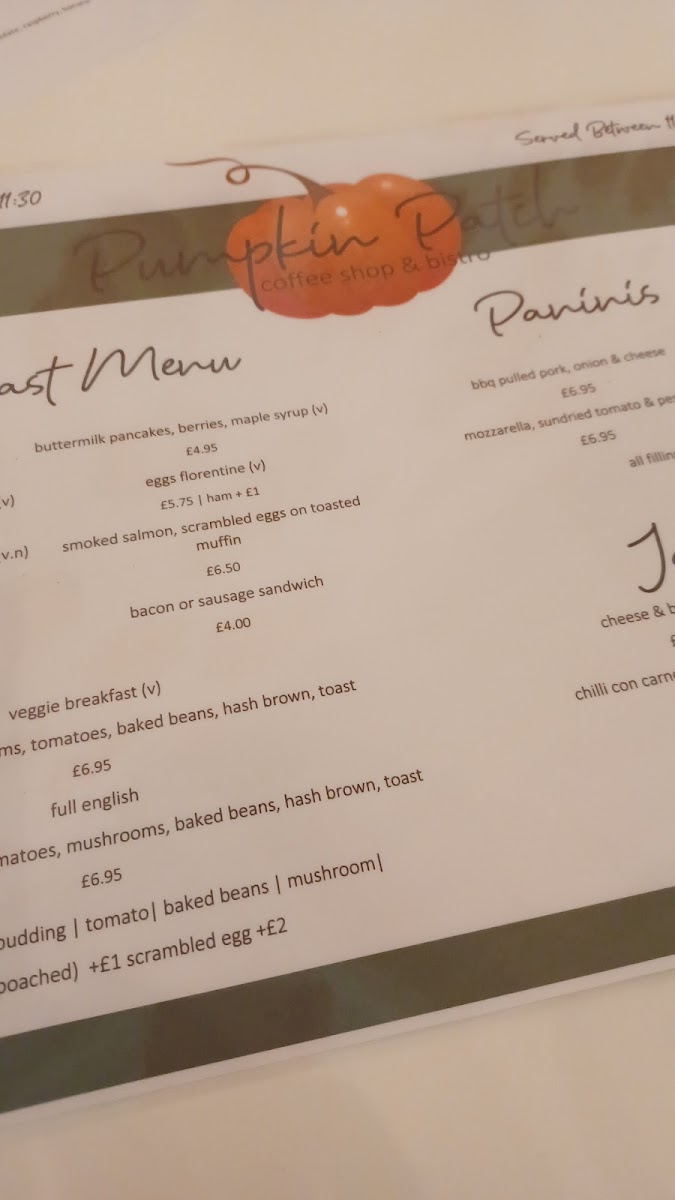 Served Between 11
11:30
Pumpkin Patch
coffee shop & bistro
ast Menu
buttermilk pancakes, berries, maple syrup (v)
£4.95
eggs florentine (v)
£5.75 | ham + £1
v)
smoked salmon, scrambled eggs on toasted
muffin
v.n)
£6.50
bacon or sausage sandwich
£4.00
veggie breakfast (v)
ms, tomatoes, baked beans, hash brown, toast
£6.95
full english
matoes, mushrooms, baked beans, hash brown, toast
£6.95
pudding | tomato| baked beans | mushroom|
poached) +£1 scrambled egg +£2
Paninis
bbq pulled pork, onion & cheese
£6.95
mozzarella, sundried tomato & pes
£6.95
all fillin
Ja
cheese & b
£
chilli con carne